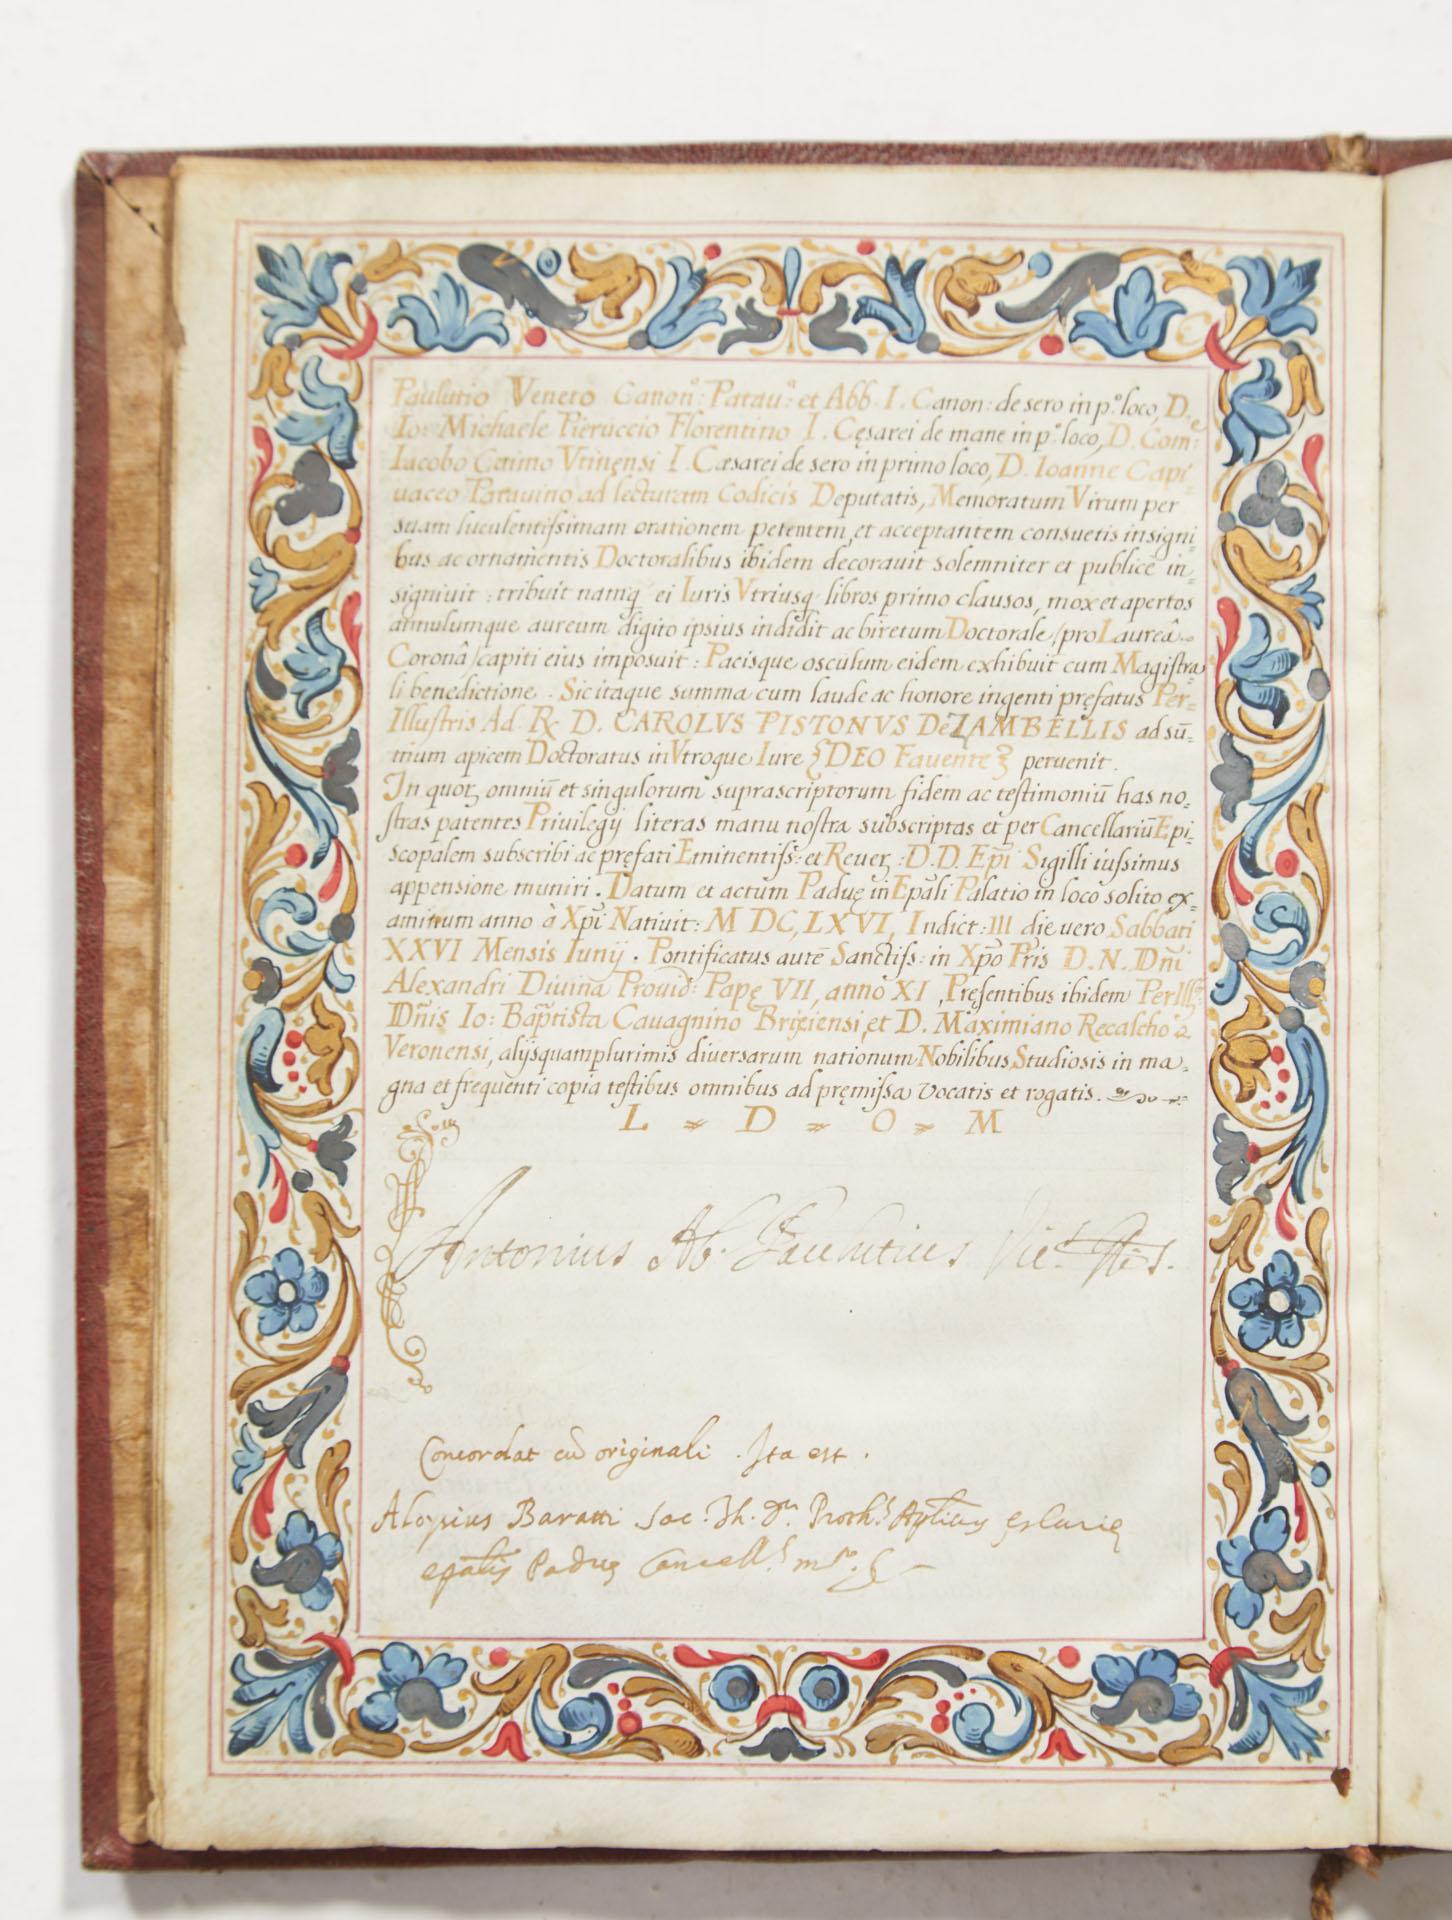 Paulutio Veneto Canon.º: Patau.ª: et Abb. I. Canon: de sero in p.º loco, D.
Io: Michaele Pieruccio Florentino I. Cęsarei de mane in p.º loco, D. Com.e:
Iacobo Caimo Vtinęnsi I. Cæsarei de sero in primo loco, D. Ioanne Capi=
uaceo Patauino ad lecturam Codicis Deputatis, Memoratum Virum per
suam luculentissimam orationem petentem, et acceptantem consuetis insigni=
bus ac ornamentis Doctoralibus ibidem decorauit solemniter et publicè in=
signiuit: tribuit namq; ei Iuris Vtriusq; libros primo clausos, mox et apertos
annulumque aureum digito ipsius indidit ac biretum Doctorale /pro Laureâ
Coronâ/ capiti eius imposuit: Pacisque osculum eidem exhibuit cum Magistra=
li benedictione. Sic itaque summa cum laude ac honore ingenti pręfatus Per=
Illustris Ad. R. D. CAROLVS PISTONVS De ZAMBELLIS ad sũ=
mum apicem Doctoratus in Vtroque Iure {DEO Fauente} peruenit.
In quor; omniũ et singulorum suprascriptorum fidem ac testimoniũ has no=
stras patentes Priuilegij literas manu nostra subscriptas et per Cancellariũ Epi=
scopalem subscribi ac pręfati Eminentiss: et Reuer: D.D. Epĩ Sigilli iussimus
appensione muniri. Datum et actum Paduę in Epãli Palatio in loco solito ex=
aminum anno à Xpĩ Natiuit: M DC, LXVI, Indict: III die uero Sabbati
XXVI Mensis Iunij. Pontificatus autẽ Sanctiss: in Xpõ Pris D. N. Dñi
Alexandri Diuina Prouid: Papę VII, anno XI, Pręsentibus ibidem Per Ill:
Dñis Io: Baptista Cauagnino Brixiensi, et D. Maximiano Recalcho
Veronensi, alijsquamplurimis diuersarum nationum Nobilibus Studiosis in ma=
gna et frequenti copia testibus omnibus ad pręmissa vocatis et rogatis.
L = D = O = M
Antonius Ab. Paulutius Vic.s
Concordat cũ originali. Ita est.
Aloysius Baratti Sac. Th. Dr. Proth.s Aplicus et Curię
epalis Paduę Cancell.s